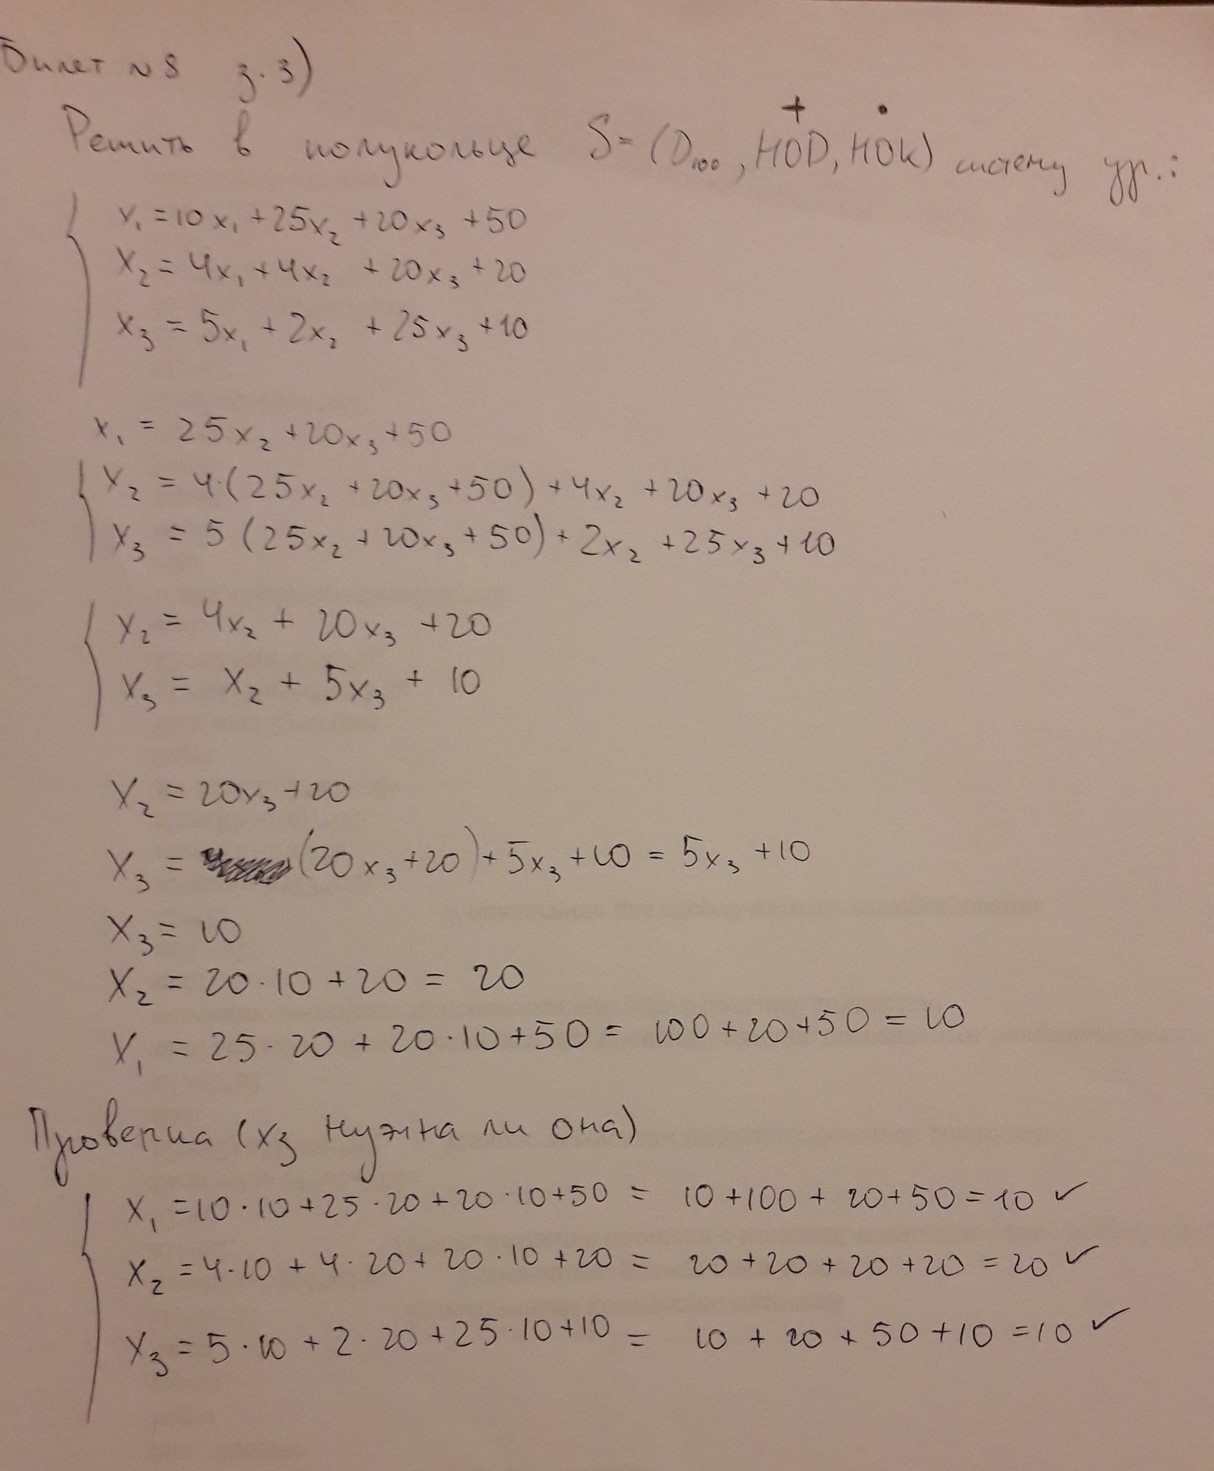 Билет №8 з.3)
+ ·
Решить в полукольце S=(D₁₀₀, НОD, НОК) систему ур.:
x₁=10x₁+25x₂+20x₃+50
x₂=4x₁+4x₂+20x₃+20
x₃=5x₁+2x₂+25x₃+10
x₁=25x₂+20x₃+50
x₂=4·(25x₂+20x₃+50)+4x₂+20x₃+20
x₃=5(25x₂+20x₃+50)+2x₂+25x₃+10
x₂=4x₂+20x₃+20
x₃=x₂+5x₃+10
x₂=20x₃+20
x₃=(20x₃+20)+5x₃+10=5x₃+10
x₃=10
x₂=20·10+20=20
x₁=25·20+20·10+50=100+20+50=10
Проверка (хз нужна ли она)
x₁=10·10+25·20+20·10+50=10+100+20+50=10 ✓
x₂=4·10+4·20+20·10+20=20+20+20+20=20 ✓
x₃=5·10+2·20+25·10+10=10+20+50+10=10 ✓